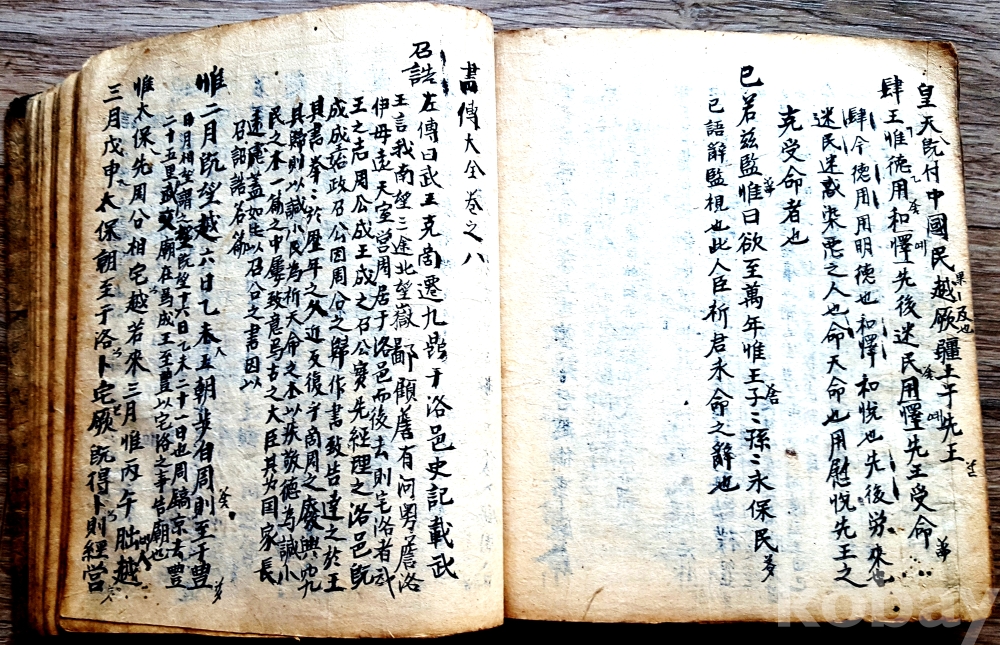 皇天旣付中國民越厥疆土于先王
肆王惟德用和懌先後迷民用懌先王受命
肆今德用用明德也和懌和悅也先後勞來也
迷民迷惑染悪之人也命天命也用慰悅先王之
克受命者也
已若玆監惟曰欲至萬年惟王子〻孫〻永保民
已語辭監視也此人臣祈君永命之辭也
書傳大全卷之八
召誥左傳曰武王克商遷九鼎于洛邑史記載武
王言我南望三途北望嶽鄙顧詹有河粤詹洛
伊毋遠天室營周居于洛邑而後去則宅洛者武
王之志周公成王成之召公實先經理之洛邑旣
成成王始政召公因周公之歸作書致告達之於王
其書拳〻於歷年之久近反復乎商周之廢興究
其歸則以諴小民為祈天命之本以疾敬德為諴小
民之本一篇之中屢致意焉古之大臣其为国家長
遠慮盖如此以召公之書因以
召誥名篇
惟二月旣望越六日乙未王朝步自周則至于豊
日月相望謂之望旣望十六日乙未二十一日也周鎬京去豊
二十五里武文廟在焉成王至豊以宅洛之事告廟也
惟太保先周公相宅越若來三月惟丙午朏越
三月戊申太保朝至于洛卜宅厥旣得卜則經營
kobay